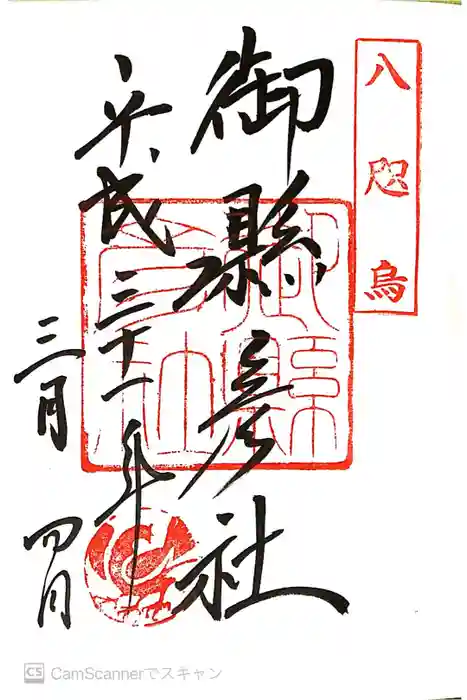 八咫烏
御縣彦社
平成三十一年
三月四日
御縣
彦社
CS CamScannerでスキャン